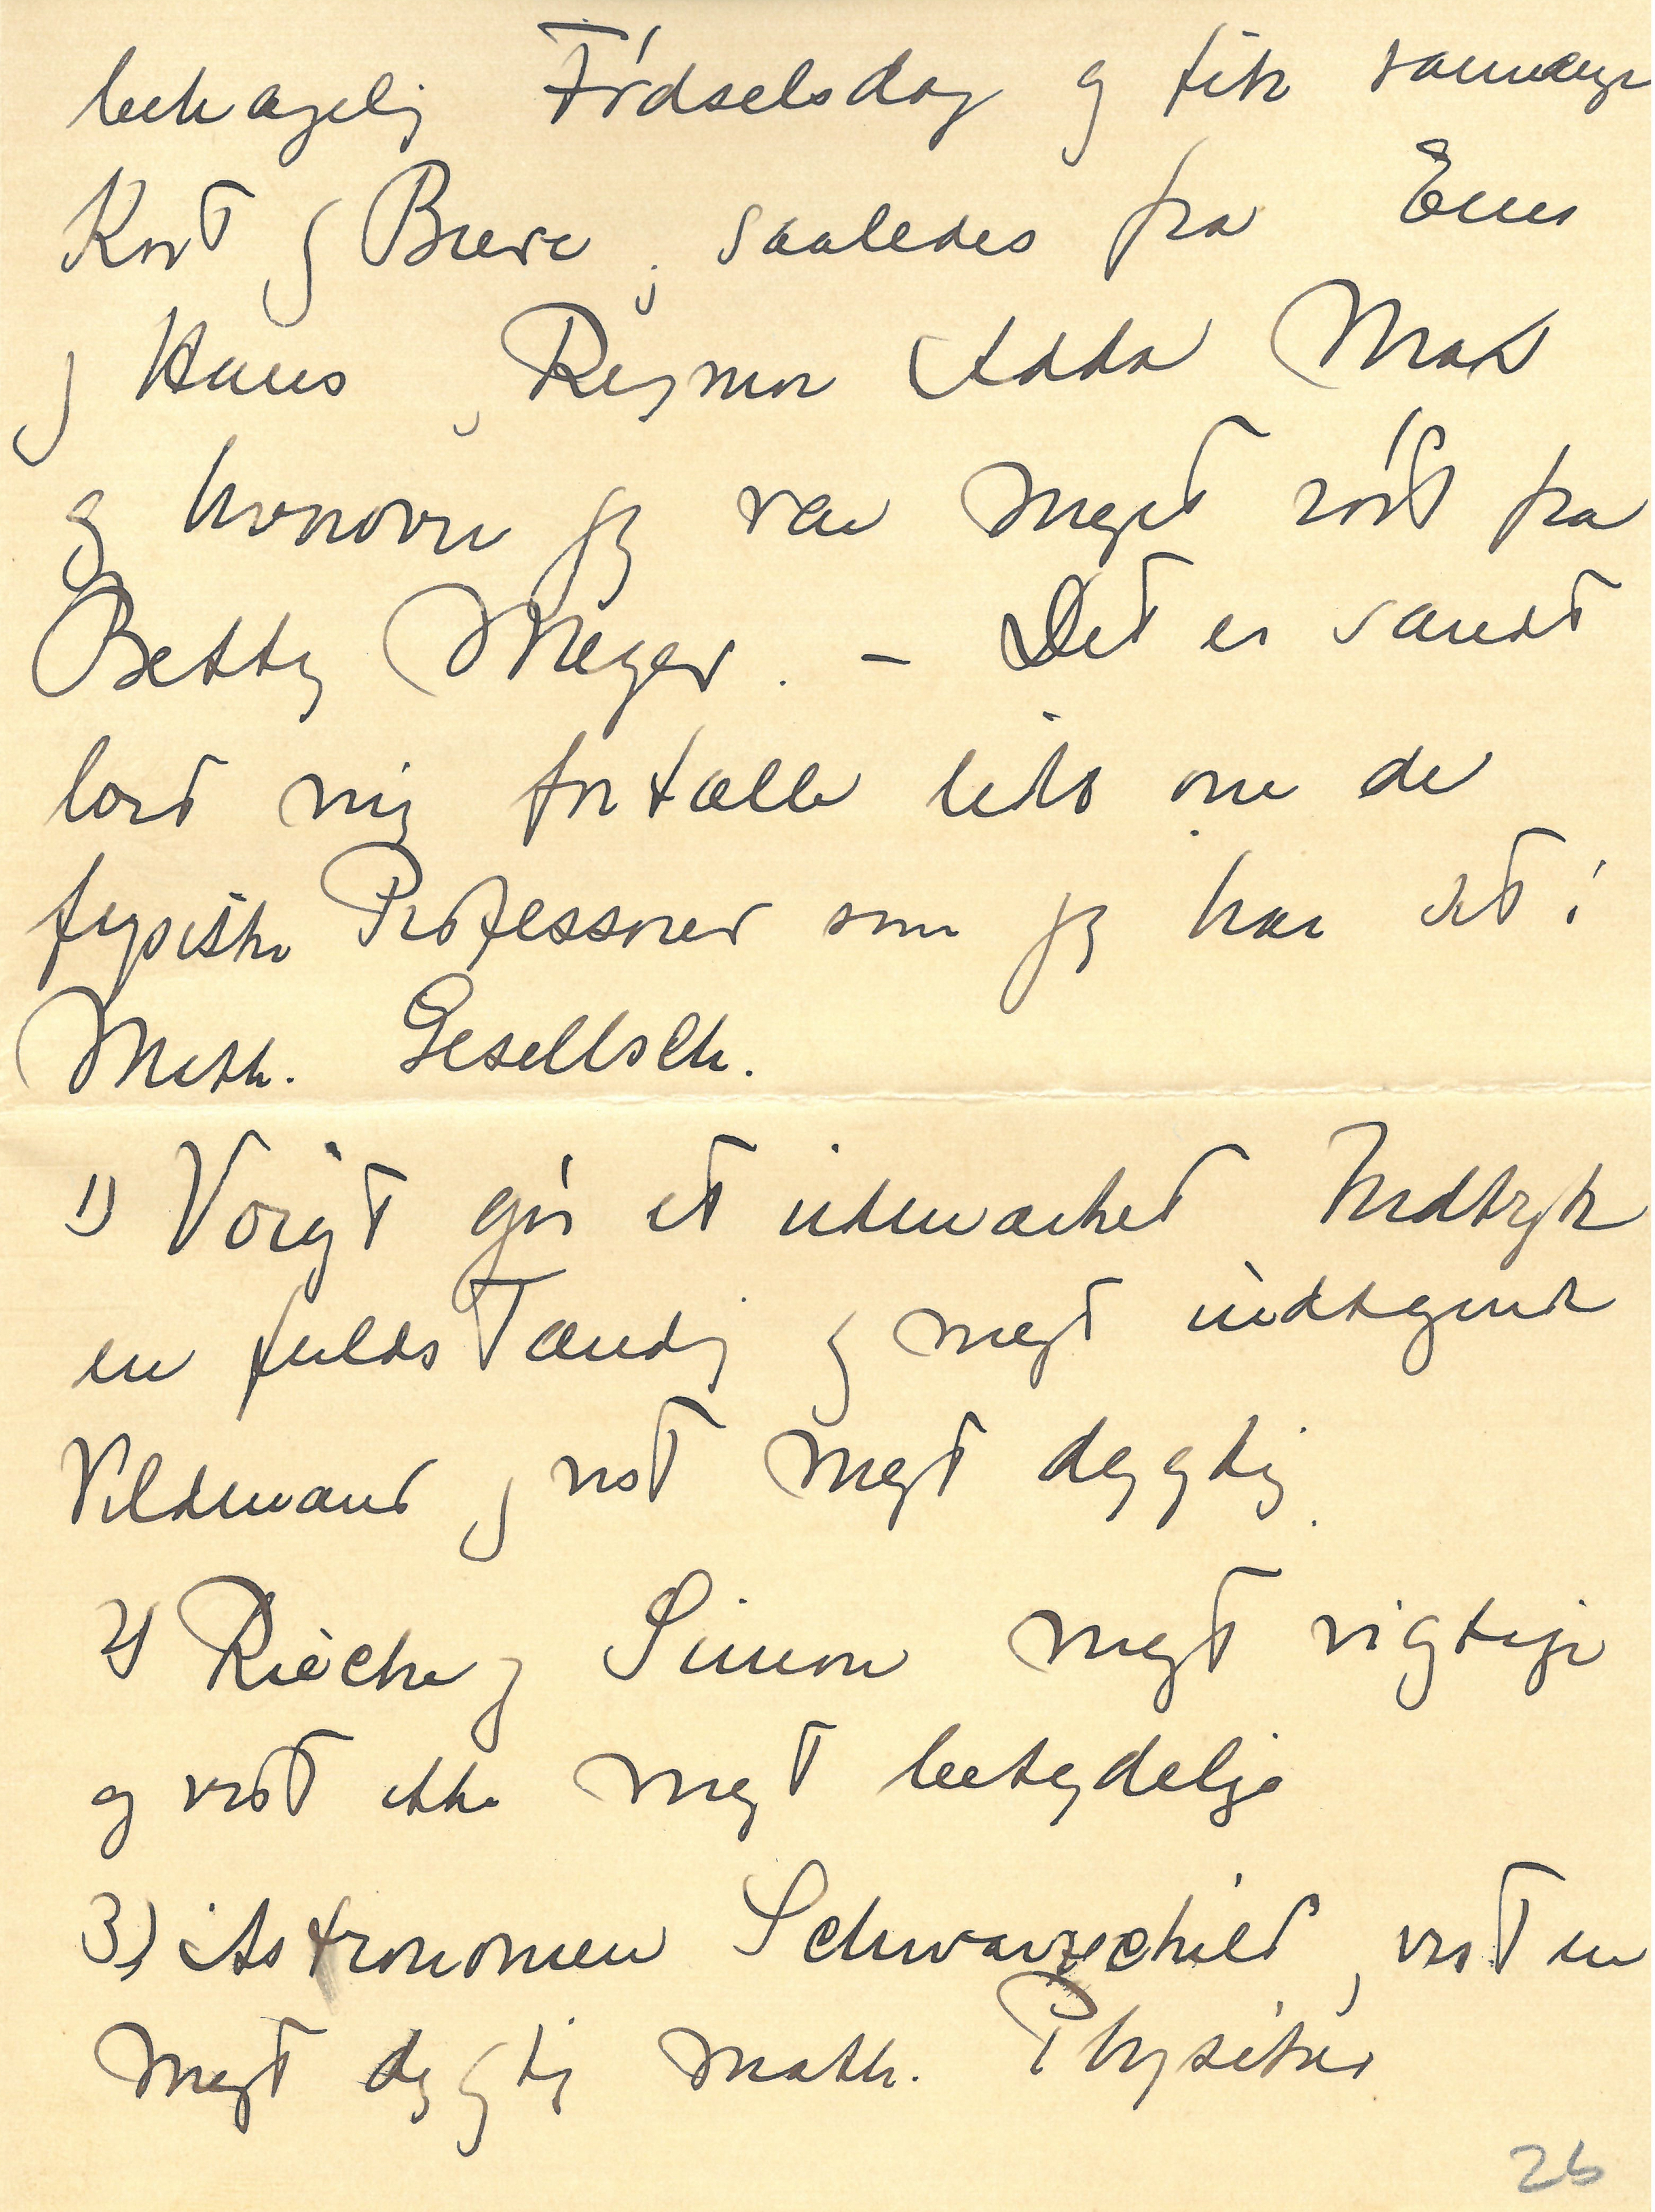 behagelig Födselsdag og fik saamange
Kort og Breve, saaledes fra Ems
og Hans, Rigmor Adda Mat
og hvorover jeg var meget rört fra
Betty Meyer. – Det er sandt
lad mig fortælle lidt om de
fysiske Professorer som jeg har set i
Math. Gesellsch.
1) Voigt gör et udmærket Indtryk
en fuldstændig og meget
Vildmand og vist meget dygtig.
2) Riecke og Simon meget vigtige
og vist ikke meget betydelige
3) Astronomen Schwarzschild, vist en
meget dygtig math. Physiker
26